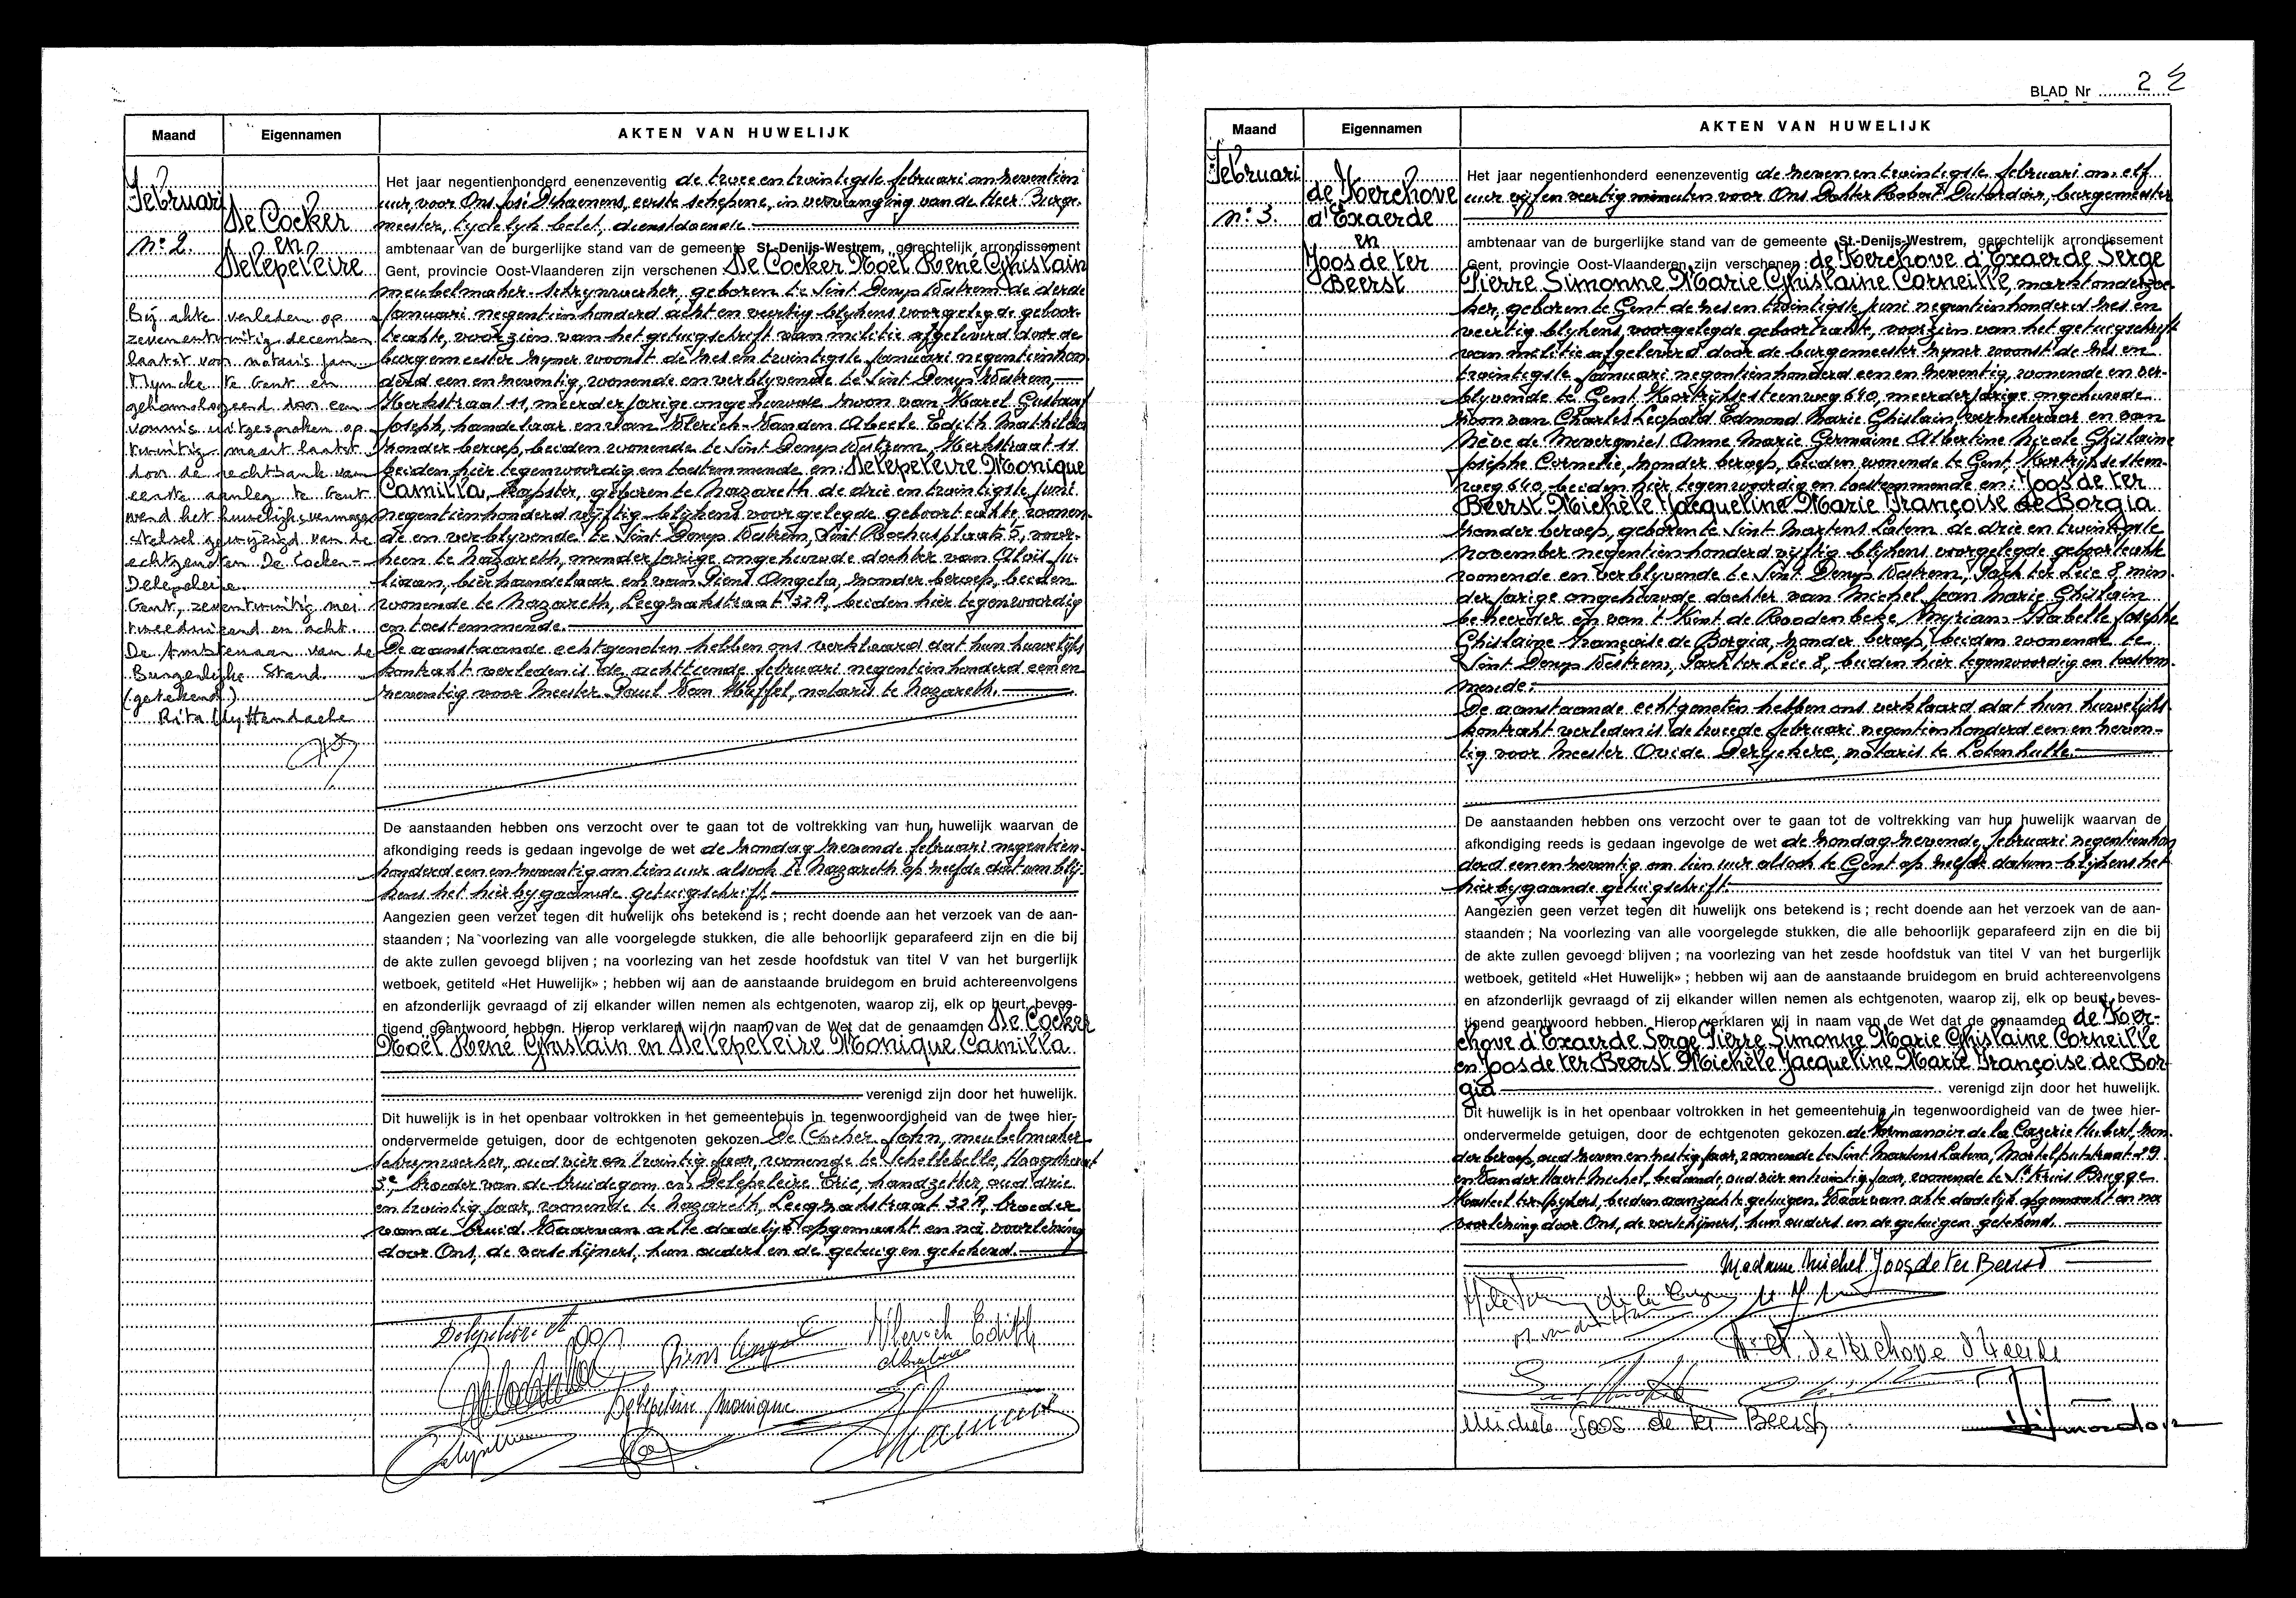 Maand
Eigennamen
AKTEN VAN HUWELIJK
Februari
n° 2.
De Cocker
en
Delepeleire
Bij akte verleden op
zevenentwintig december
laatst voor notaris Jan
Myncke te Gent en
gehomologeerd door een
vonnis uitgesproken op
twintig maart laatst
door de rechtbank van
eerste aanleg te Gent
werd het huwelijksvermogen
stelsel gewijzigd van de
echtgenoten De Cocker-
Delepeleire.
Gent, zeventwintig mei
tweeduizend en acht.
De Ambtenaar van de
Burgerlijke Stand.
(getekend)
Rita Uyttendaele
Het jaar negentienhonderd eenenzeventig de twee en twintigste februari om zeventien
uur, voor Ons José Dhaenens, eerste schepene, in vervanging van de Heer Burge-
meester, tydelyk belet, dienstdoende
ambtenaar van de burgerlijke stand van de gemeente St.-Denijs-Westrem, gerechtelijk arrondissement
Gent, provincie Oost-Vlaanderen zijn verschenen De Cocker Noël René Ghislain
meubelmaker-schrynwerker, geboren te Sint Denys Westrem de derde
Januari negentienhonderd acht en veertig blykens voorgelegde geboor-
teakte, voorzien van het getuigschrift van militie afgeleverd door de
burgemeester zyner woonst de zes en twintigste Januari negentienhon-
derd een en zeventig, wonende en verblyvende te Sint Denys Westrem,
Kerkstraat 11, meerderjarige ongehuwde zoon van Karel Gustaaf
Joseph, handelaar en van Vlerick-Vanden Abeele Edith Mathilda
zonder beroep, beiden wonende te Sint Denys Westrem, Kerkstraat 11
beiden hier tegenwoordig en toestemmende en: Delepeleire Monique
Camilla, kapster, geboren te Nazareth de drie en twintigste Juni
negentienhonderd vyftig blykens voorgelegde geboorteakte wonen-
de en verblyvende te Sint Denys Westrem, Sint Rochusplaats 5, voor-
heen te Nazareth, minderjarige ongehuwde dochter van Aloïs Ju-
liaan, bierhandelaar en van Piens Angela, zonder beroep, beiden
wonende te Nazareth, Leegzakstraat 32A, beiden hier tegenwoordig
en toestemmende.
De aanstaande echtgenoten hebben ons verklaard dat hun huwelijks
kontrakt verleden is de achttiende februari negentienhonderd een en
zeventig voor Meester Paul Van Maffel, notaris te Nazareth.
De aanstaanden hebben ons verzocht over te gaan tot de voltrekking van hun huwelijk waarvan de
afkondiging reeds is gedaan ingevolge de wet de zondag zevende februari negentien-
honderd een en zeventig om tien uur alsook te Nazareth op zelfde datum blij-
kens het hierbygaande getuigschrift.
Aangezien geen verzet tegen dit huwelijk ons betekend is ; recht doende aan het verzoek van de aan-
staanden ; Na voorlezing van alle voorgelegde stukken, die alle behoorlijk geparafeerd zijn en die bij
de akte zullen gevoegd blijven ; na voorlezing van het zesde hoofdstuk van titel V van het burgerlijk
wetboek, getiteld «Het Huwelijk» ; hebben wij aan de aanstaande bruidegom en bruid achtereenvolgens
en afzonderlijk gevraagd of zij elkander willen nemen als echtgenoten, waarop zij, elk op beurt, beves-
tigend geantwoord hebben. Hierop verklaren wij in naam van de Wet dat de genaamden De Cocker
Noël René Ghislain en Delepeleire Monique Camilla
verenigd zijn door het huwelijk.
Dit huwelijk is in het openbaar voltrokken in het gemeentehuis in tegenwoordigheid van de twee hier-
ondervermelde getuigen, door de echtgenoten gekozen De Cocker John, meubelmaker
schrynwerker, oud vier en twintig jaar, wonende te Schellebelle, Hoogstraat
broeder van de bruidegom en Delepeleire Eric, handzetter, oud drie
en twintig jaar, wonende te Nazareth, Leegzakstraat 32A, broeder
van de bruid. Waarvan akte dadelijk opgemaakt en na voorlezing
door Ons, de verschijners, hun ouders en de getuigen getekend.
Piens Angela
Vlerick Edith
Delepeleire Monique
BLAD Nr 2
Maand
Eigennamen
AKTEN VAN HUWELIJK
Februari
n° 3.
de Kerchove
d'Exaerde
en
Joos de ter
Beerst
Het jaar negentienhonderd eenenzeventig de zevenentwintigste februari om elf
uur vijf en veertig minuten voor Ons Dokter Robert Dutordoir, burgemeester
ambtenaar van de burgerlijke stand van de gemeente St.-Denijs-Westrem, gerechtelijk arrondissement
Gent, provincie Oost-Vlaanderen zijn verschenen: de Kerchove d'Exaerde Serge
Pierre Simonne Marie Ghislaine Corneille, marktonderzoe-
ker, geboren te Gent de zes en twintigste Juni negentienhonderd zes en
veertig blykens voorgelegde geboorteakte, voorzien van het getuigschrift
van militie afgeleverd door de burgemeester zyner woonst de zes en
twintigste Januari negentienhonderd een en zeventig, wonende en ver-
blyvende te Gent Kortrijksesteenweg 640, meerderjarige ongehuwde
zoon van Charles Leopold Edmond Marie Ghislain, verzekeraar en van
Nève de Mévergnies Anne Marie Germaine Albertine Nicole Ghislaine
Josèphe Cornelie, zonder beroep, beiden wonende te Gent, Kortrijksesteen-
weg 640, beiden hier tegenwoordig en toestemmende en: Joos de ter
Beerst Michèle Jacqueline Marie Françoise de Borgia
zonder beroep, geboren te Sint-Martens Latem de drie en twintigste
November negentienhonderd vyftig blykens voorgelegde geboorteakte
wonende en verblyvende te Sint Denys Westrem, Park ter Leie 8, min-
derjarige ongehuwde dochter van Michel Jean Marie Ghislain
beheerder en van 't Kint de Roodenbeke Myriam Isabelle Josèphe
Ghislaine Françoise de Borgia, zonder beroep, beiden wonende te
Sint Denys Westrem, Park ter Leie 8, beiden hier tegenwoordig en toestem-
mende.
De aanstaande echtgenoten hebben ons verklaard dat hun huwelijks-
kontrakt verleden is de tweede februari negentienhonderd een en zeven-
tig voor Meester Ovide Derijckere, notaris te Lotenhulle.
De aanstaanden hebben ons verzocht over te gaan tot de voltrekking van hun huwelijk waarvan de
afkondiging reeds is gedaan ingevolge de wet de zondag zevende februari negentienhon
derd een en zeventig om tien uur alsook te Gent op zelfde datum blijkens het
hierbygaande getuigschrift.
Aangezien geen verzet tegen dit huwelijk ons betekend is ; recht doende aan het verzoek van de aan-
staanden ; Na voorlezing van alle voorgelegde stukken, die alle behoorlijk geparafeerd zijn en die bij
de akte zullen gevoegd blijven ; na voorlezing van het zesde hoofdstuk van titel V van het burgerlijk
wetboek, getiteld «Het Huwelijk» ; hebben wij aan de aanstaande bruidegom en bruid achtereenvolgens
en afzonderlijk gevraagd of zij elkander willen nemen als echtgenoten, waarop zij, elk op beurt, beves-
tigend geantwoord hebben. Hierop verklaren wij in naam van de Wet dat de genaamden de Ker-
chove d'Exaerde Serge Pierre Simonne Marie Ghislaine Corneille
en Joos de ter Beerst Michèle Jacqueline Marie Françoise de Bor-
gia verenigd zijn door het huwelijk.
Dit huwelijk is in het openbaar voltrokken in het gemeentehuis in tegenwoordigheid van de twee hier-
ondervermelde getuigen, door de echtgenoten gekozen de Formanoir de la Cazerie Hubert, zon-
der beroep, oud zeven en zestig jaar, wonende te Sint Martens Latem, Mortelputstraat 29
en Vander Haert Michel, bediende, oud vier en twintig jaar, wonende te St Kruis Brugge
Kasteel ter beiden aanzochte getuigen. Waarvan akte dadelijk opgemaakt en na
voorlezing door Ons, de verschijners, hun ouders en de getuigen getekend.
Madame Michel Joos de ter Beerst
de Kerchove d'Exaerde
Michèle Joos de ter Beerst